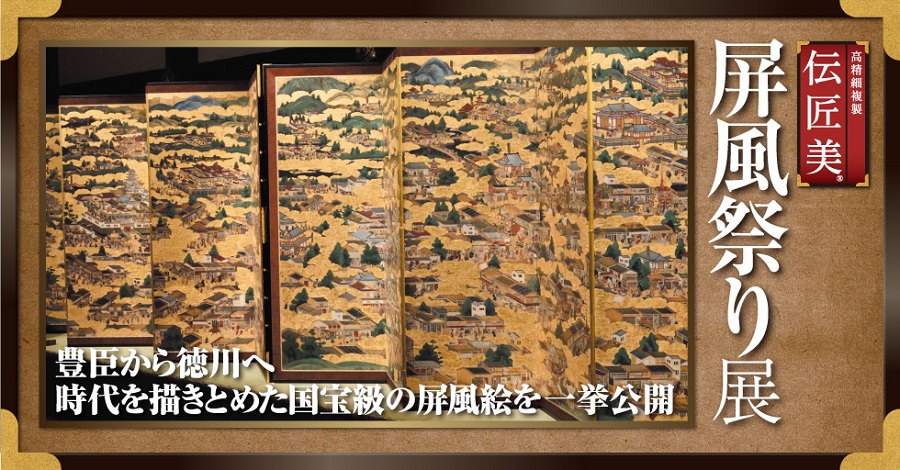 高精細複製
伝匠美®
屏風祭り展
豊臣から徳川へ
時代を描きとめた国宝級の屏風絵を一挙公開